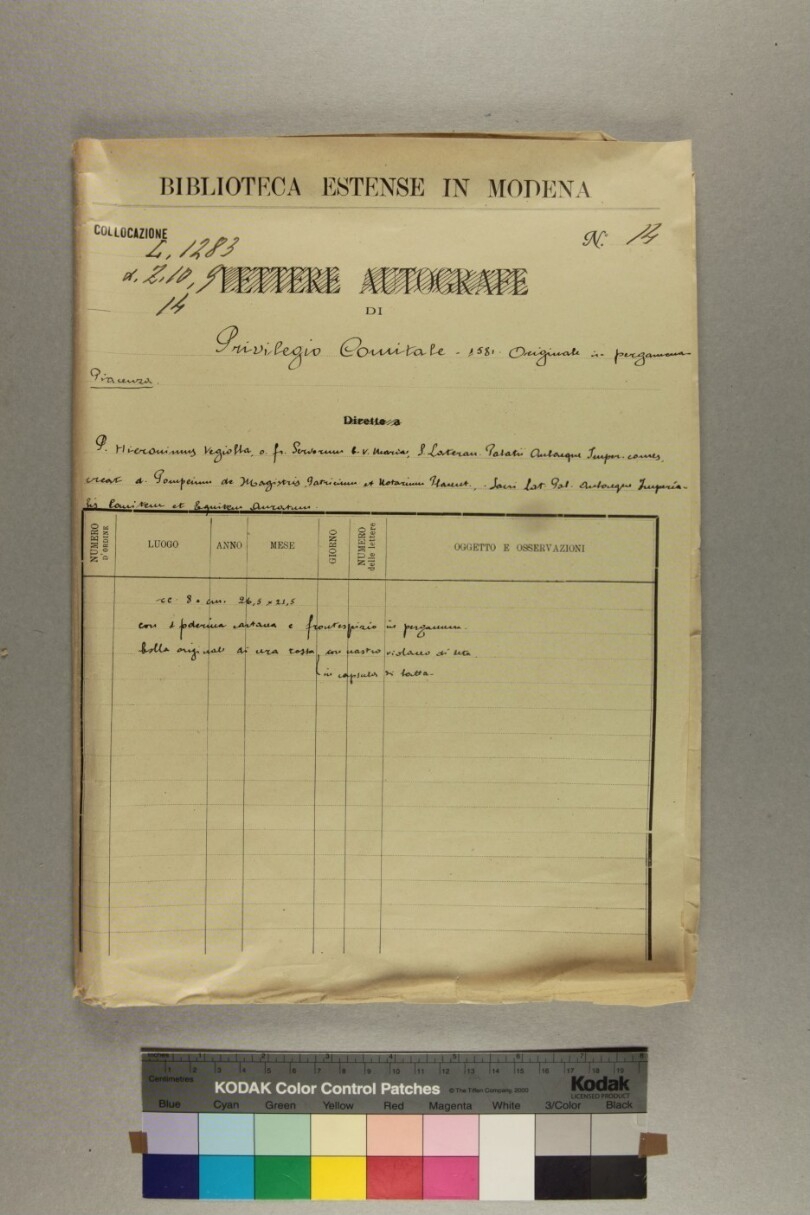 BIBLIOTECA ESTENSE IN MODENA
COLLOCAZIONE
N. 14
L. 1283
α. Z. 10, 9
14
LETTERE AUTOGRAFE
DI
Privilegio Comitale - 1581 Originale in pergamena
Piacenza
Diretto a
P. Hieronimus Vegiolla, o. fr. Servorum b. v. Maria, S. Lateran. Palatii Aulaeque Imper. comes,
creat a Pompeium de Magistris Patricium et Notarium - Sacri Lat. Pal. Aulaeque Imperia-
lis Comitem et Equitem Auratum
NUMERO D'ORDINE
LUOGO
ANNO
MESE
GIORNO
NUMERO delle lettere
OGGETTO E OSSERVAZIONI
cc. 8. cm. 26,5 x 21,5
con e frontespizio in pergamena.
bolla originale di cera rossa, con nastro violaceo di seta
in capsula di latta.
inches 1 2 3 4 5 6 7 8
1 2 3 4 5 6 7 8 9 10 11 12 13 14 15 16 17 18 19
Centimetres
KODAK Color Control Patches
© The Tiffen Company, 2000
Kodak
LICENSED PRODUCT
Blue Cyan Green Yellow Red Magenta White 3/Color Black